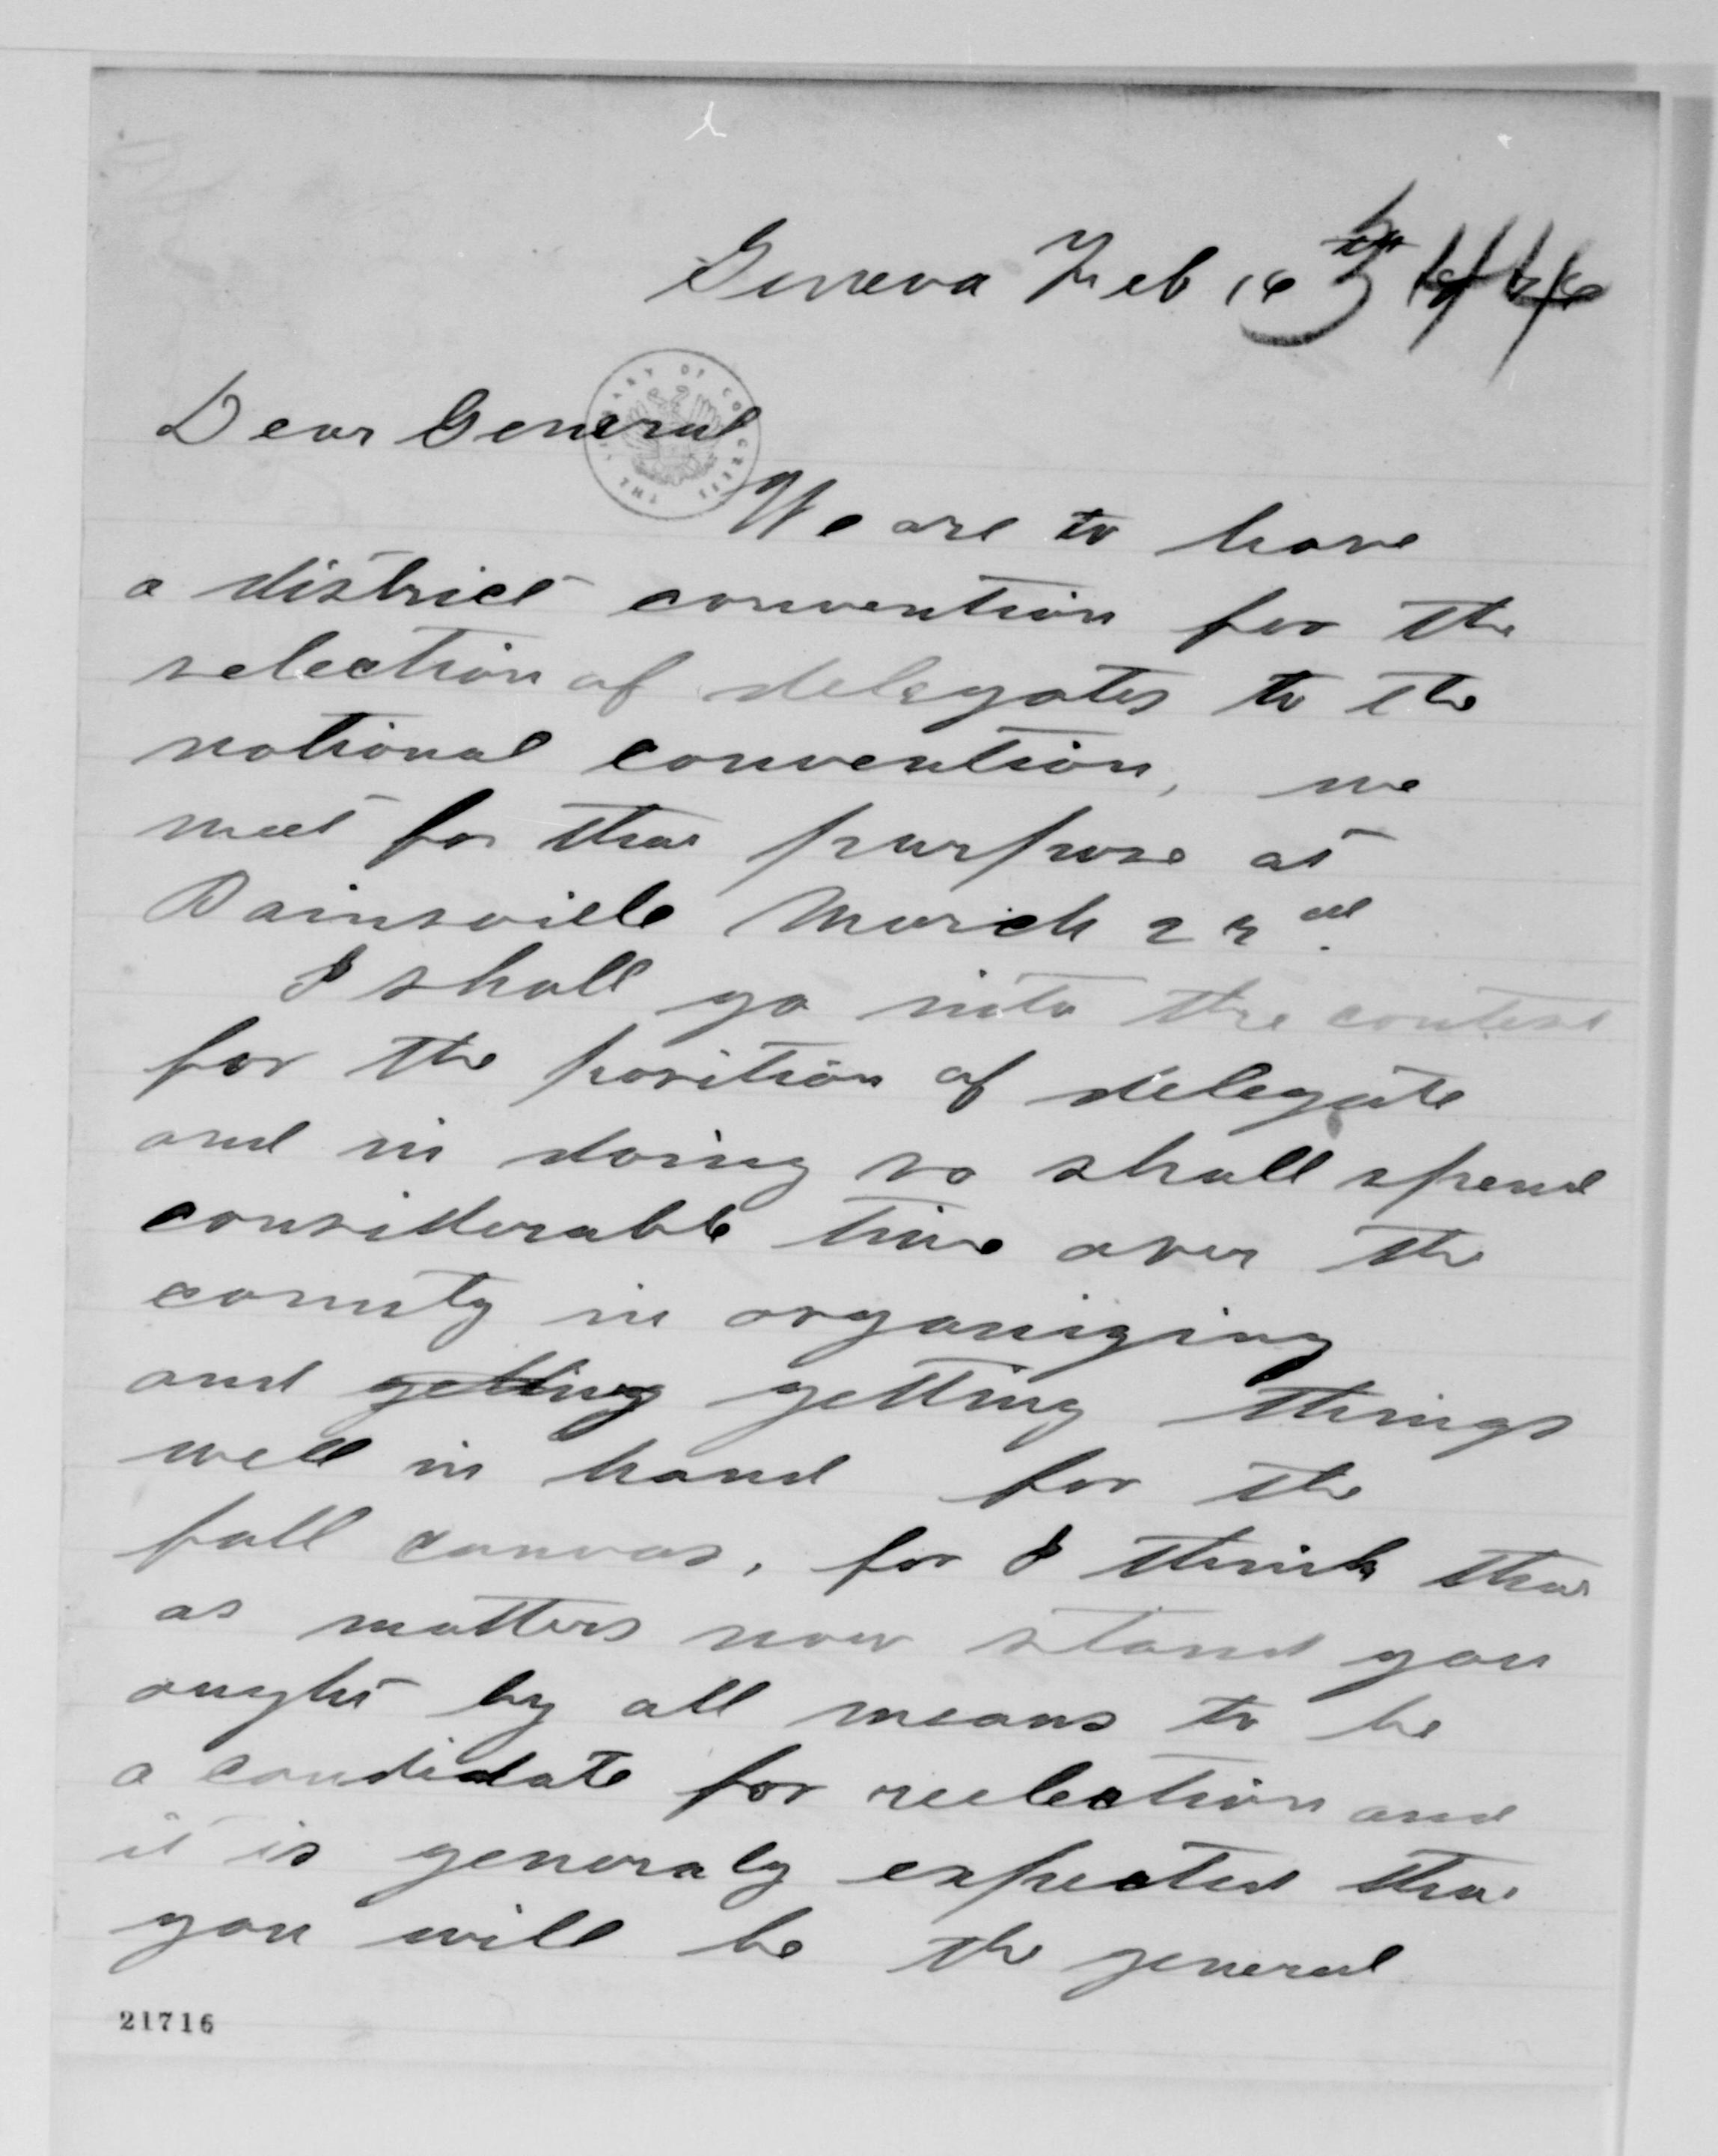 Geneva Feb 16th 1876
344
Dear General
THE LIBRARY OF CONGRESS
We are to have
a district convention for the
selection of delegates to the
national convention, we
meet for that purpose at
Painsville March 22nd.
I shall go into the contest
for the position of delegate
and in doing so shall spend
considerable time over the
county in organizing
and getting getting things
well in hand for the
fall canvas, for I think that
as matters now stand you
ought by all means to be
a candidate for reelection and
it is generaly expected that
you will be the general
21716